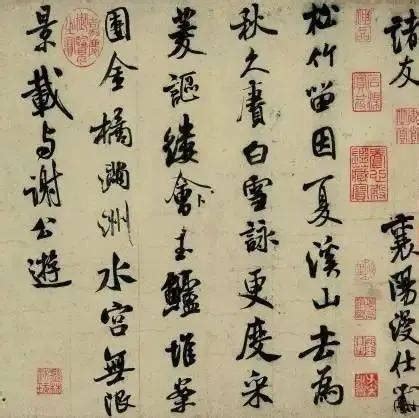 諸友 襄陽漫仕黻
松竹留因夏溪山去為
秋久賡白雪詠更度采
菱謳縷會玉鱸堆案
團金橘滿洲水宮無限
景載与謝公遊